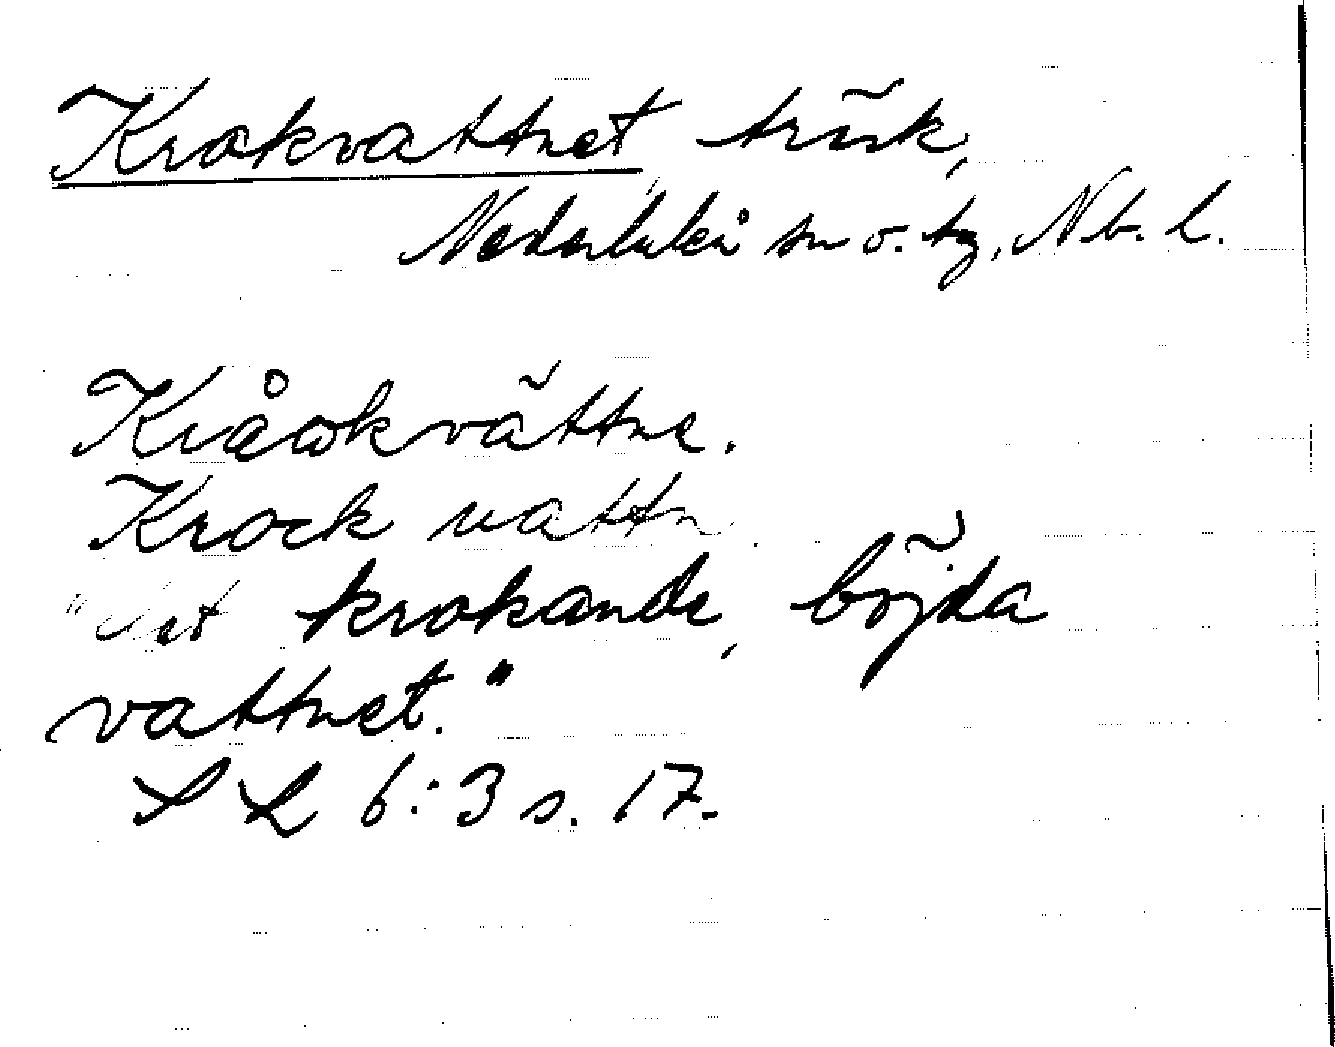 Krokvattnet, träsk,
Nederluleå sn o. tg, Nb. l.
Kråokvättne.
Krock vattn
"det krokande, böjda
vattnet."
S L 6:3 s. 17.